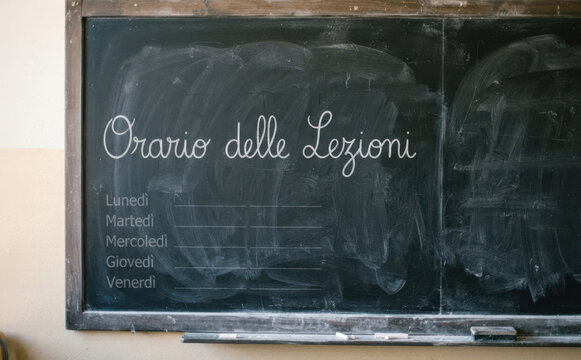 Orario delle Lezioni
Lunedì
Martedì
Mercoledì
Giovedì
Venerdì